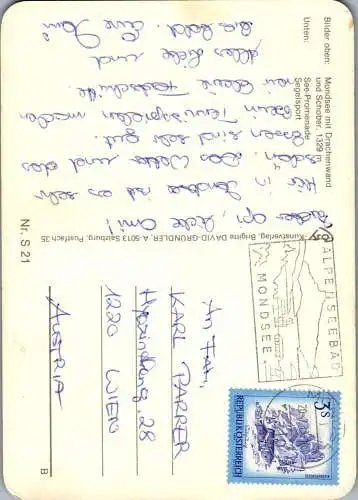 Bilder oben: Mondsee mit Drachenwand
und Schober, 1329
See-Promenade
Unten: Segelsport
Lieber Opi, liebe Omi!
Hier in Mondsee ist es sehr
schön. Das Wetter und das
Essen sind sehr gut.
Beim Tennisspielen machen
wir kleine Fortschritte.
Alles Liebe und
bis bald. Eure
Kunstverlag, Brigitte DAVID-GRÜNDLER, A-5013 Salzburg, Postfach 35
Nr. S 21
ALPENSEEBAD
MONDSEE
3S
REPUBLIK ÖSTERREICH
An Fam.
KARL PARRER
28
1220 WIEN
AUSTRIA
B